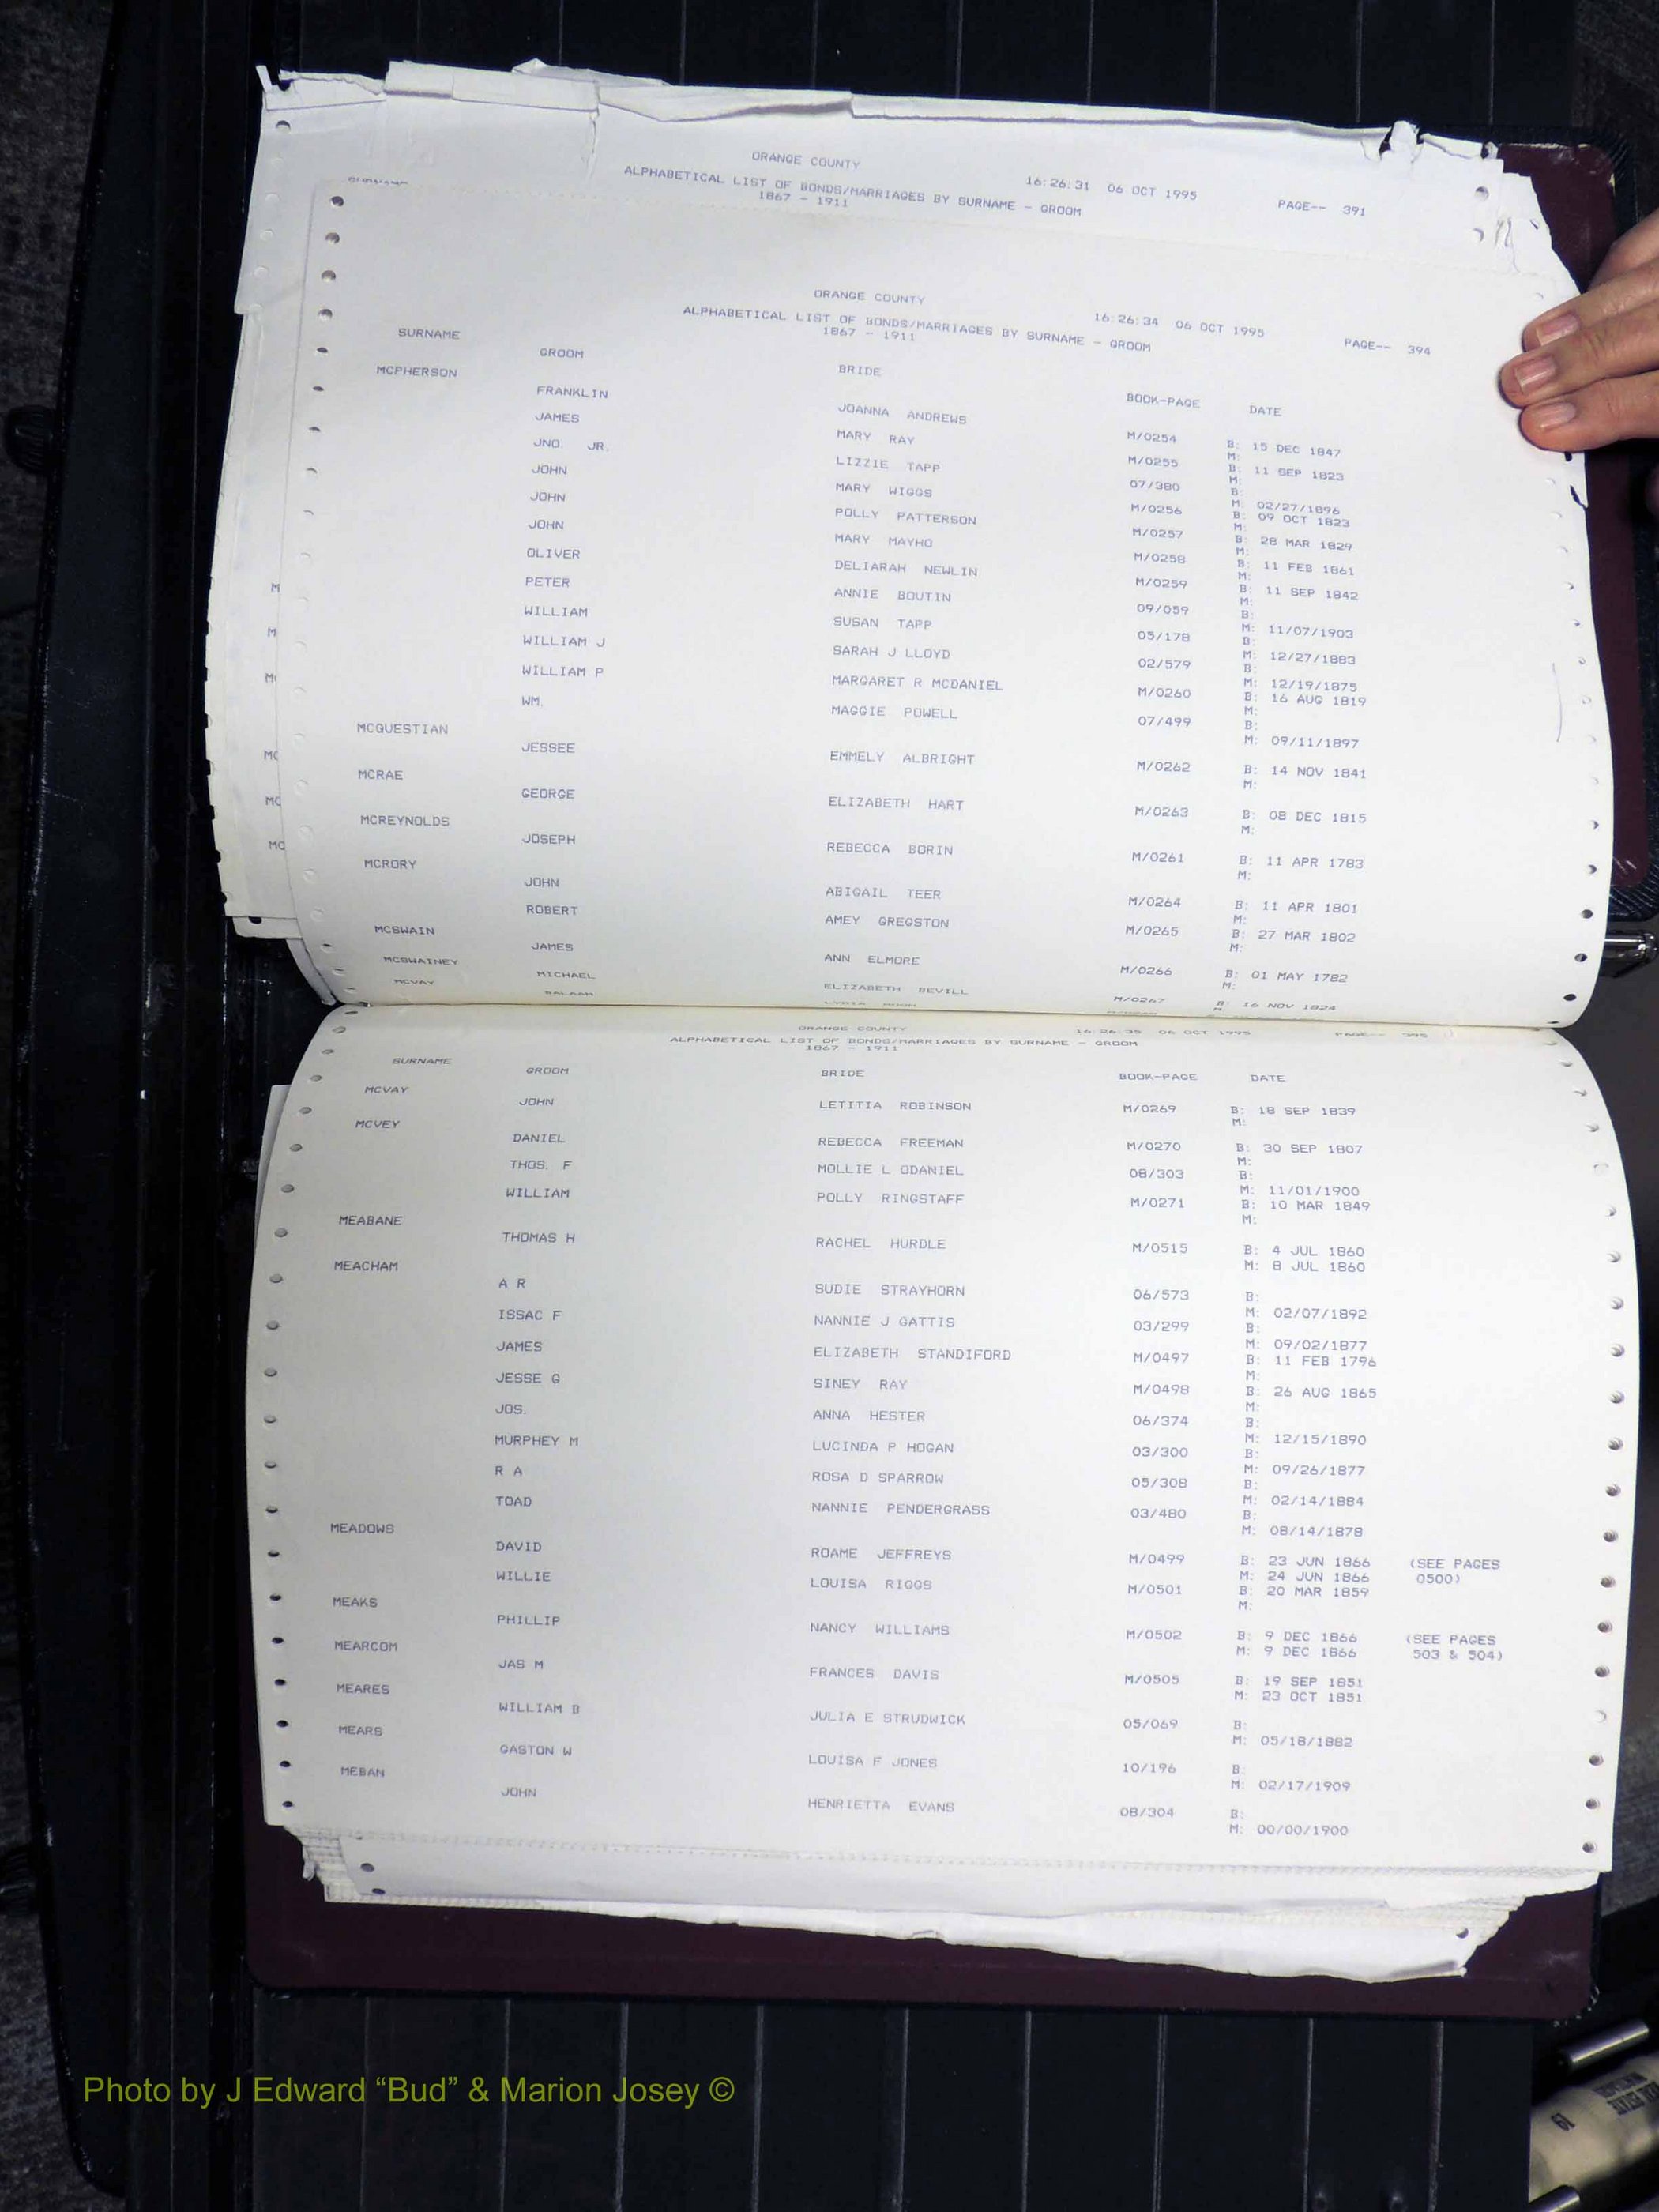 ORANGE COUNTY
16:26:31 06 OCT 1995
ALPHABETICAL LIST OF BONDS/MARRIAGES BY SURNAME - GROOM
PAGE-- 391
1867 - 1911
ORANGE COUNTY
16:26:34 06 OCT 1995
ALPHABETICAL LIST OF BONDS/MARRIAGES BY SURNAME - GROOM
PAGE-- 394
1867 - 1911
SURNAME GROOM BRIDE BOOK-PAGE DATE
MCPHERSON
FRANKLIN JOANNA ANDREWS M/0254 B: 15 DEC 1847
M:
JAMES MARY RAY M/0255 B: 11 SEP 1823
M:
JNO. JR. LIZZIE TAPP 07/380 B:
M: 02/27/1896
JOHN MARY WIGGS M/0256 B: 09 OCT 1823
M:
JOHN POLLY PATTERSON M/0257 B: 28 MAR 1829
M:
JOHN MARY MAYHO M/0258 B: 11 FEB 1861
M:
OLIVER DELIARAH NEWLIN M/0259 B: 11 SEP 1842
M:
PETER ANNIE BOUTIN 09/059 B:
M: 11/07/1903
WILLIAM SUSAN TAPP 05/178 B:
M: 12/27/1883
WILLIAM J SARAH J LLOYD 02/579 B:
M: 12/19/1875
WILLIAM P MARGARET R MCDANIEL M/0260 B: 16 AUG 1819
M:
WM. MAGGIE POWELL 07/499 B:
M: 09/11/1897
MCQUESTIAN
JESSEE EMMELY ALBRIGHT M/0262 B: 14 NOV 1841
M:
MCRAE
GEORGE ELIZABETH HART M/0263 B: 08 DEC 1815
M:
MCREYNOLDS
JOSEPH REBECCA BORIN M/0261 B: 11 APR 1783
M:
MCRORY
JOHN ABIGAIL TEER M/0264 B: 11 APR 1801
M:
ROBERT AMEY GREGSTON M/0265 B: 27 MAR 1802
M:
MCSWAIN
JAMES ANN ELMORE M/0266 B: 01 MAY 1782
M:
MCSWAINEY
MICHAEL ELIZABETH BEVILL M/0267 B: 16 NOV 1824
M
MCVAY
BALAAM
ORANGE COUNTY
16:26:35 06 OCT 1995
PAGE-- 395
ALPHABETICAL LIST OF BONDS/MARRIAGES BY SURNAME - GROOM
1867 - 1911
SURNAME GROOM BRIDE BOOK-PAGE DATE
MCVAY
JOHN LETITIA ROBINSON M/0269 B: 18 SEP 1839
M:
MCVEY
DANIEL REBECCA FREEMAN M/0270 B: 30 SEP 1807
M:
THOS. F MOLLIE L ODANIEL 08/303 B:
M: 11/01/1900
WILLIAM POLLY RINGSTAFF M/0271 B: 10 MAR 1849
M:
MEABANE
THOMAS H RACHEL HURDLE M/0515 B: 4 JUL 1860
M: 8 JUL 1860
MEACHAM
A R SUDIE STRAYHORN 06/573 B:
M: 02/07/1892
ISSAC F NANNIE J GATTIS 03/299 B:
M: 09/02/1877
JAMES ELIZABETH STANDIFORD M/0497 B: 11 FEB 1796
M:
JESSE G SINEY RAY M/0498 B: 26 AUG 1865
M:
JOS. ANNA HESTER 06/374 B:
M: 12/15/1890
MURPHEY M LUCINDA P HOGAN 03/300 B:
M: 09/26/1877
R A ROSA D SPARROW 05/308 B:
M: 02/14/1884
TOAD NANNIE PENDERGRASS 03/480 B:
M: 08/14/1878
MEADOWS
DAVID ROAME JEFFREYS M/0499 B: 23 JUN 1866 (SEE PAGES
M: 24 JUN 1866 0500)
WILLIE LOUISA RIGGS M/0501 B: 20 MAR 1859
M:
MEAKS
PHILLIP NANCY WILLIAMS M/0502 B: 9 DEC 1866 (SEE PAGES
M: 9 DEC 1866 503 & 504)
MEARCOM
JAS M FRANCES DAVIS M/0505 B: 19 SEP 1851
M: 23 OCT 1851
MEARES
WILLIAM B JULIA E STRUDWICK 05/069 B:
M: 05/18/1882
MEARS
GASTON W LOUISA F JONES 10/196 B:
M: 02/17/1909
MEBAN
JOHN HENRIETTA EVANS 08/304 B:
M: 00/00/1900
Photo by J Edward “Bud” & Marion Josey ©